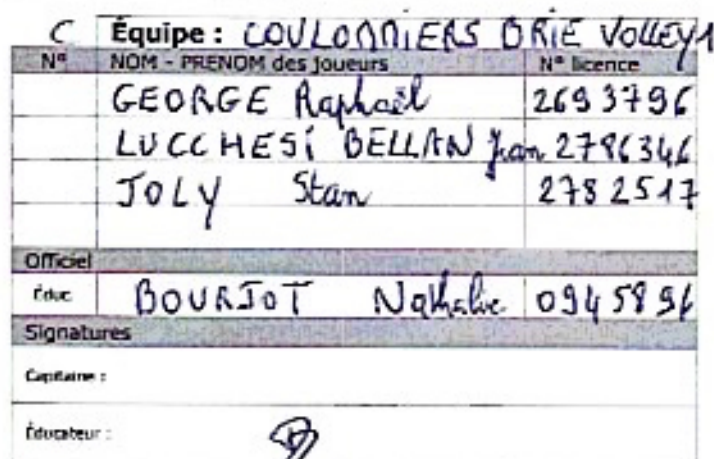 C Équipe : COULOMMIERS BRIE VOLLEY 1
N° NOM - PRENOM des joueurs N° licence
GEORGE Raphaël 2693796
LUCCHESI BELLAN Jean 2786346
JOLY Stan 2782517
Officiel
Éduc BOURJOT Nathalie 0945896
Signatures
Capitaine :
Éducateur :